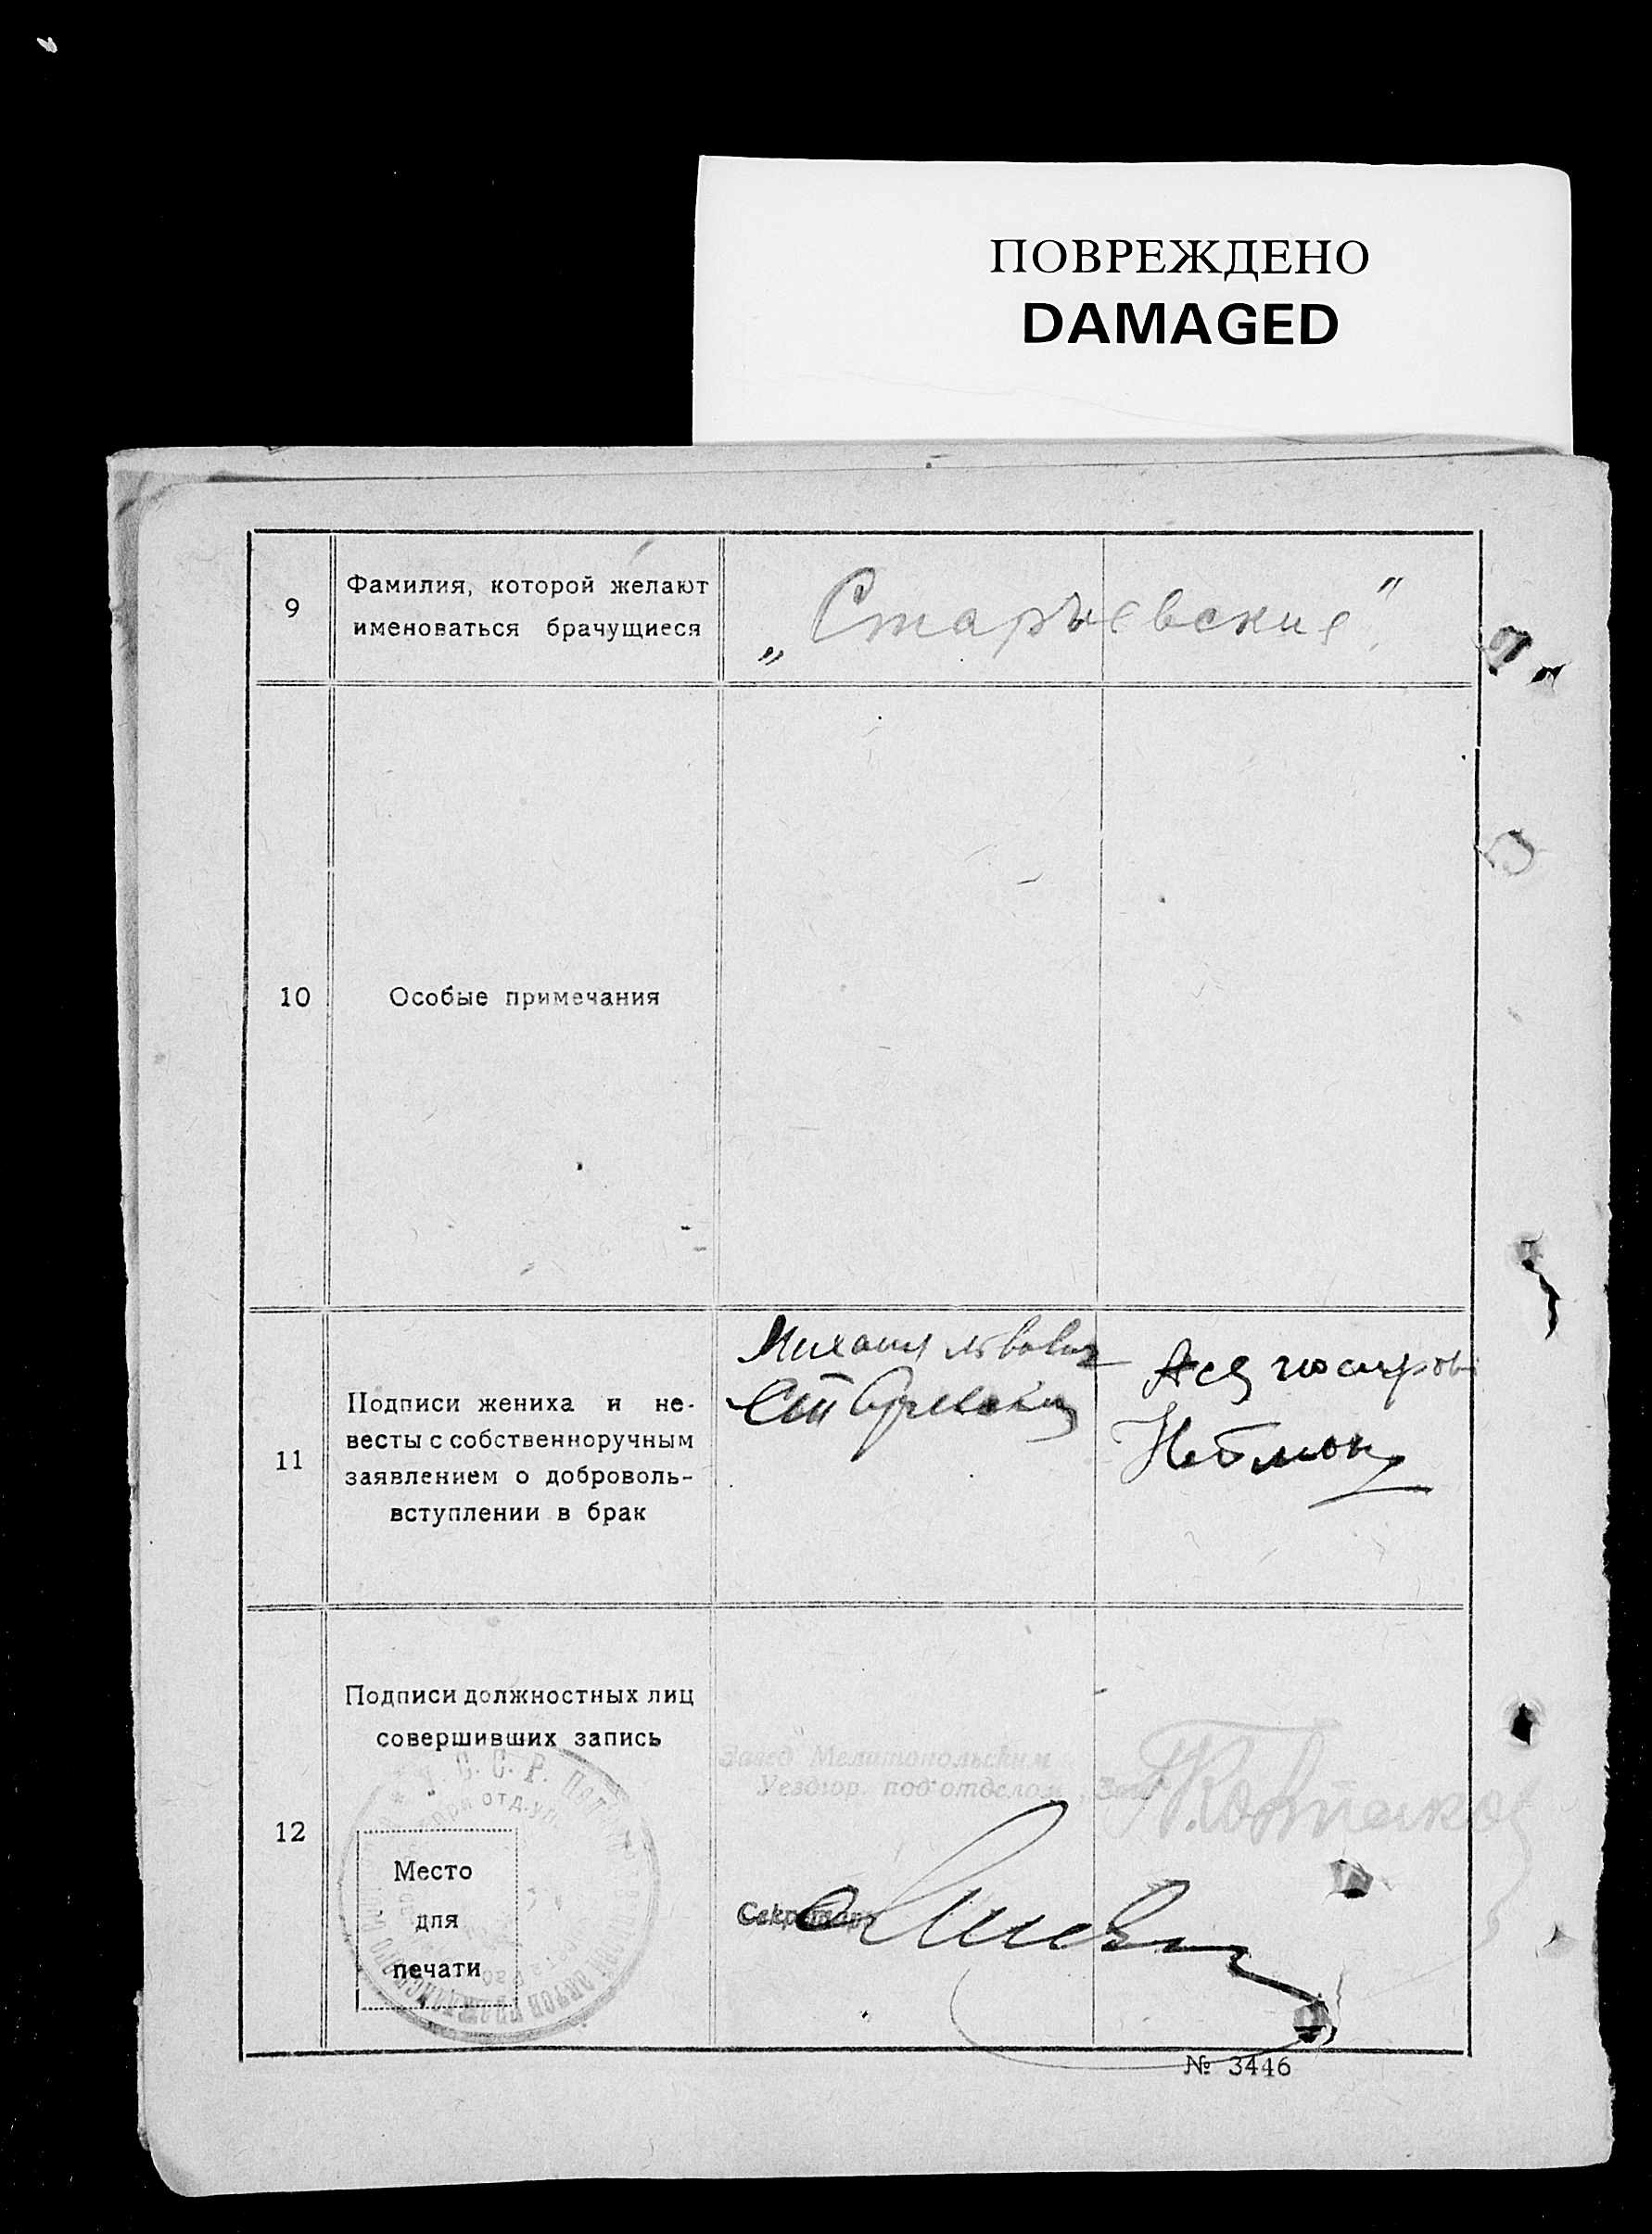 ПОВРЕЖДЕНО
DAMAGED
9
Фамилия, которой желают
именоваться брачущиеся
„Старъевские"
10
Особые примечания
11
Подписи жениха и не-
весты с собственноручным
заявлением о доброволь-
вступлении в брак
Михаил Львович
Ася
12
Подписи должностных лиц
совершивших запись
Завед Мелитопольским
Уездгор. подотделом
У. С. С. Р.
Место
для
печати
Секретарь
№ 3446